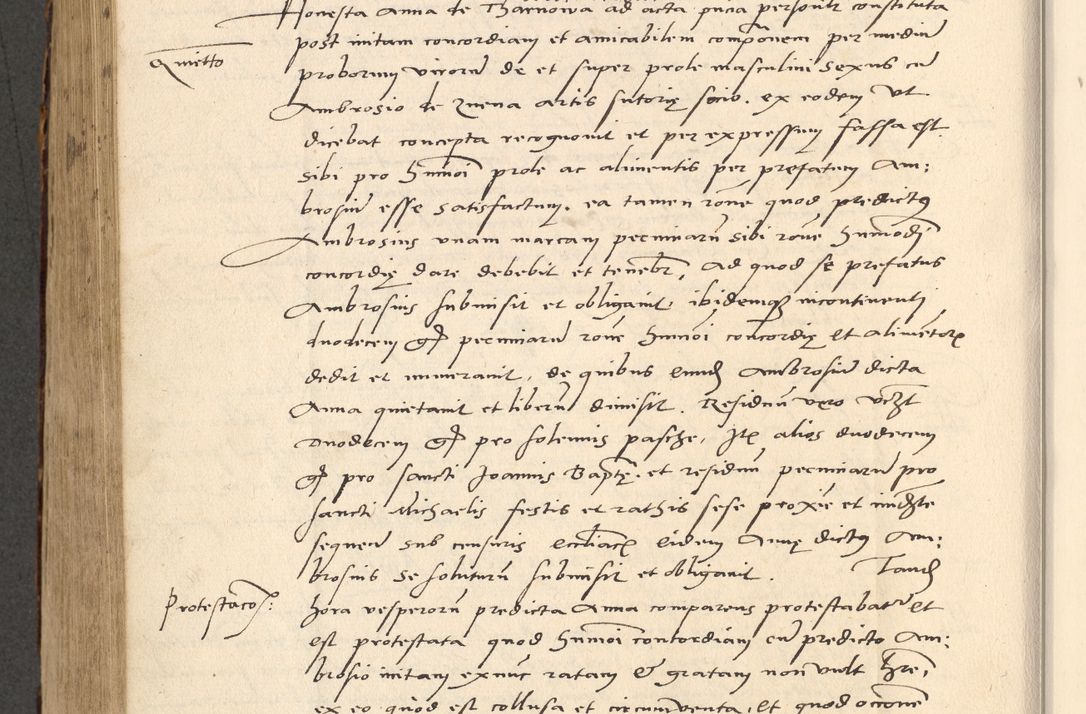 Honesta Anna de Tharnowa ad acta pñcia personlr constituta
post initam concordiam et amicabilem compõnem per mediũ
Quietto
proborum virorũ de et super prole masculini sexus cũ
Ambrosio de Znena artis sutorię socio. ex eodem Ut
dicebat concepta recognovit et per expressum fassa est.
sibi pro hmnõi prole ac alimentis per prefatum Am:
brosiũ esse satisfactum. ea tamen rõne quod predictus
Ambrosius unam marcam pecuniarũ sibi rõne hmnõdi
concordię dare debebit et tenebr̃, Ad quod se prefatus
Ambrosius submisit et obligavit, ibidemq̃ incontinenti
duodecem gř pecuniarũ rõne hmnõi concordię et alimetorz
dedit et numeravit, de quibus eund Ambrosiũ dicta
Anna quietavit et liberũ dimisit. Residuũ vero
duodecem gř pro solennis pasche, Itẽ alios duodecem
gř pro sancti Joannis Baptę. et residuũ pecuniarũ pro
sancti Michaelis festis et rathis sese proxiẽ et imẽdte
sequeñ sub censuris eccliacz eidem Annę dictus Am:
brosius se soluturũ submisit et obligavit. Tand
Protestaco:
hora vesperorũ predicta Anna comparens protestabatr̃ Et
est protestata quod hmnõi concordiam cũ predicto Am:
brosio initam exnũc ratam & gratam non vult hr̃e,
ex eo quod est collusa et circumventa, Et quod occõne